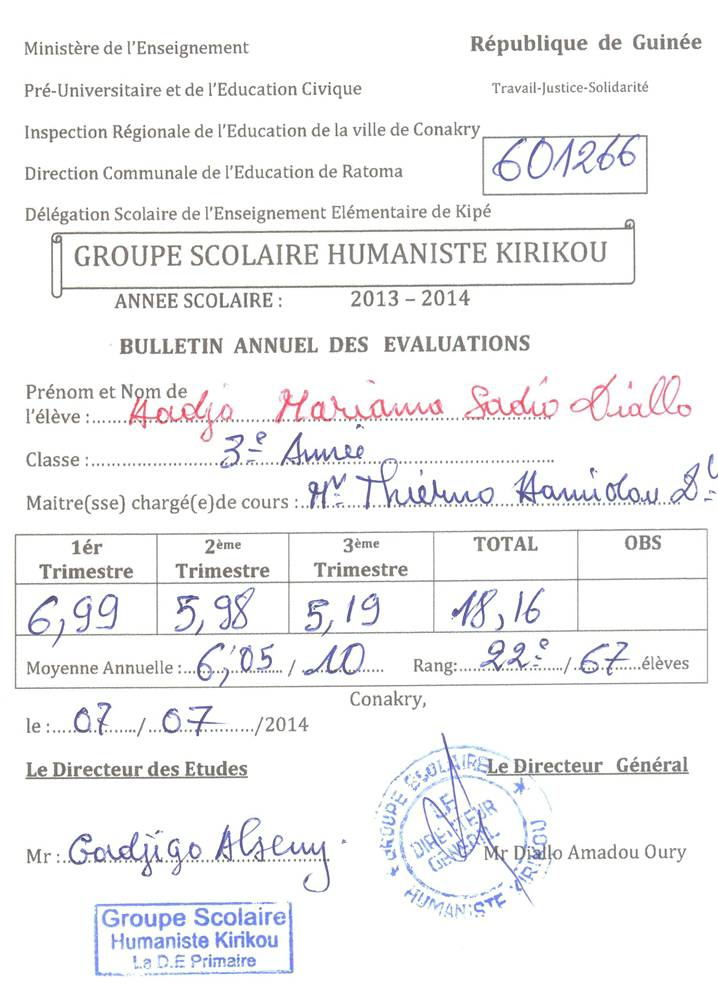 Ministère de l'Enseignement
République de Guinée
Pré-Universitaire et de l'Education Civique
Travail-Justice-Solidarité
Inspection Régionale de l'Education de la ville de Conakry
601266
Direction Communale de l'Education de Ratoma
Délégation Scolaire de l'Enseignement Elémentaire de Kipé
GROUPE SCOLAIRE HUMANISTE KIRIKOU
ANNEE SCOLAIRE : 2013 – 2014
BULLETIN ANNUEL DES EVALUATIONS
Prénom et Nom de
l'élève :..... Hadja Mariama Sadio Diallo
Classe :..... 3è Année
Maitre(sse) chargé(e)de cours :.. Mr Thierno Hamidou
1ér Trimestre 2ème Trimestre 3ème Trimestre TOTAL OBS
6,99 5,98 5,19 18,16
Moyenne Annuelle :... 6,05 / 10 Rang: 22è / 67 élèves
Conakry,
le :.... 07 / 07 /2014
Le Directeur des Etudes Le Directeur Général
GROUPE SCOLAIRE HUMANISTE KIRIKOU
LE DIRECTEUR GENERAL
Mr :.. Gadjigo Alseny Mr Diallo Amadou Oury
Groupe Scolaire
Humaniste Kirikou
La D.E Primaire